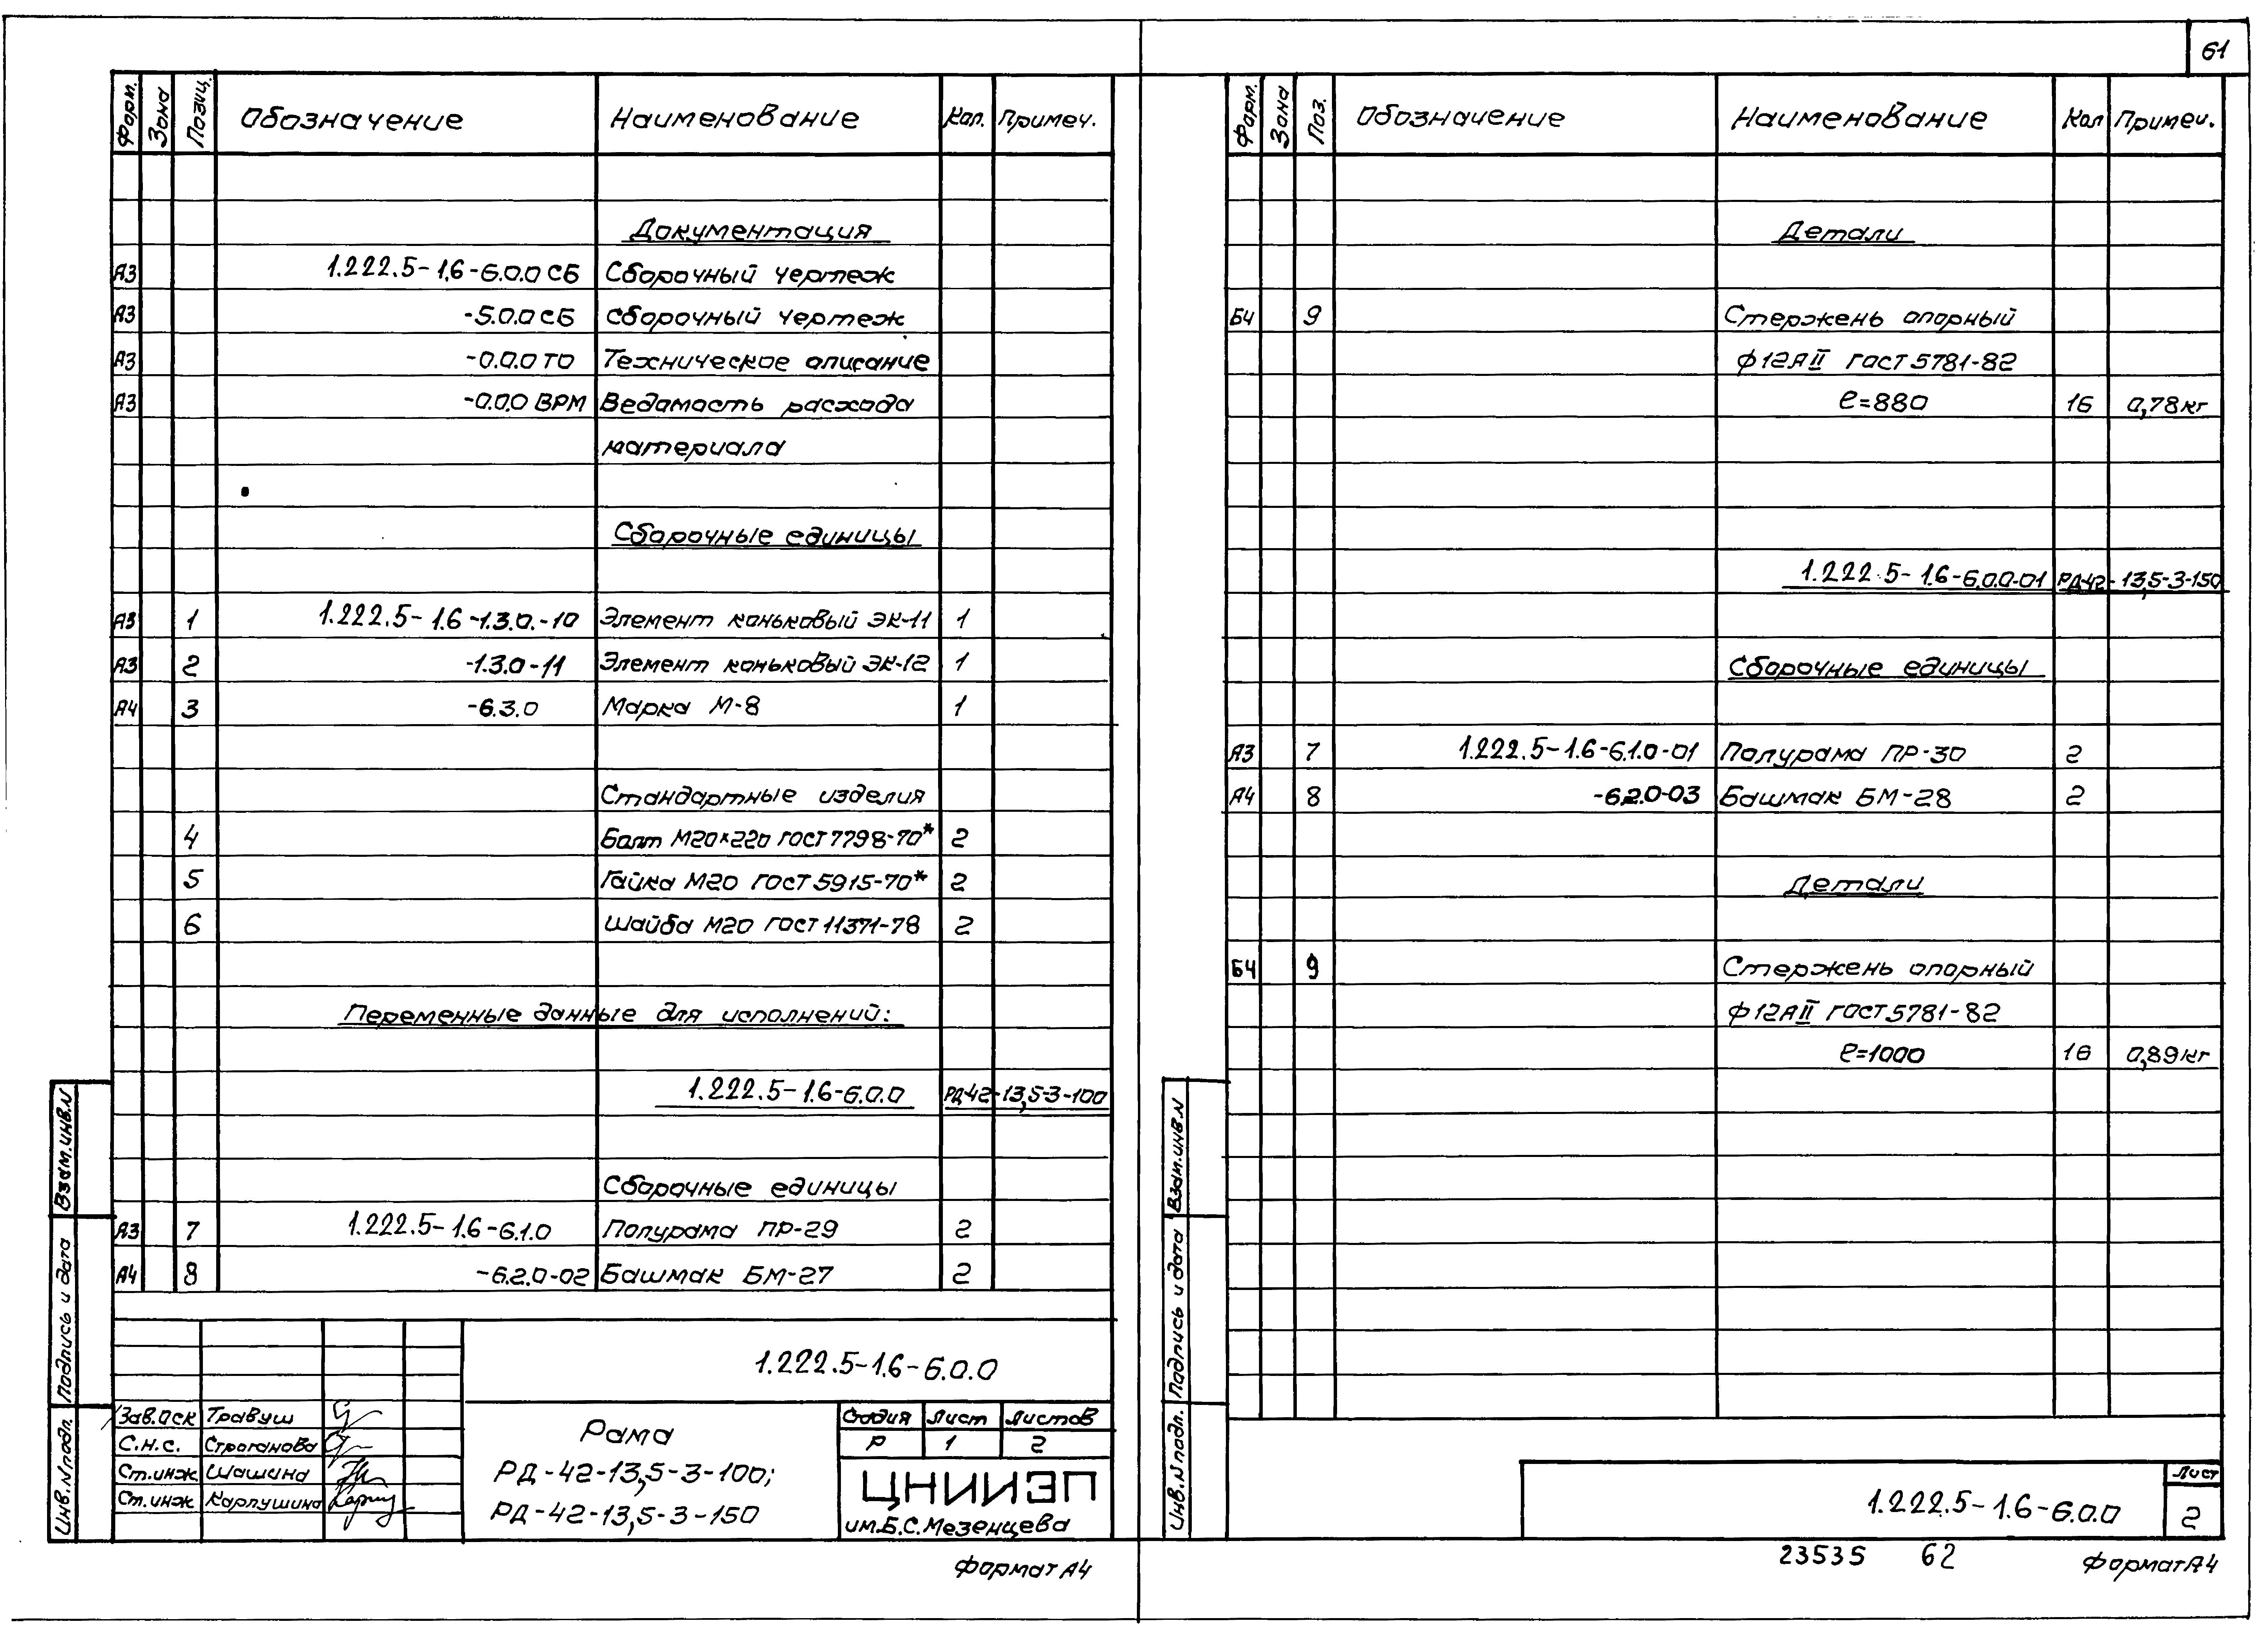 61
Форм. Зона Позиц. Обозначение Наименование Кол. Примеч.
Документация
А3 1.222.5-1.6-6.0.0 СБ Сборочный чертеж
А3 -5.0.0 СБ Сборочный чертеж
А3 -0.0.0 ТО Техническое описание
А3 -0.0.0 ВРМ Ведомость расхода
материала
Сборочные единицы
А3 1 1.222.5-1.6-1.3.0.-10 Элемент коньковый ЭК-11 1
А3 2 -1.3.0-11 Элемент коньковый ЭК-12 1
А4 3 -6.3.0 Марка М-8 1
Стандартные изделия
4 Болт М20×220 ГОСТ 7798-70* 2
5 Гайка М20 ГОСТ 5915-70* 2
6 Шайба М20 ГОСТ 11371-78 2
Переменные данные для исполнений:
1.222.5-1.6-6.0.0 РД-42-13,5-3-100
Сборочные единицы
А3 7 1.222.5-1.6-6.1.0 Полурама ПР-29 2
А4 8 -6.2.0-02 Башмак БМ-27 2
Взам.инв.N
Подпись и дата
Инв.N подл.
1.222.5-1.6-6.0.0
Зав.оск Травуш
С.н.с. Строганова
Ст.инж Шашина
Ст.инж Карпушина
Рама
РД-42-13,5-3-100;
РД-42-13,5-3-150
Стадия Лист Листов
Р 1 2
ЦНИИЭП
им.Б.С.Мезенцева
Формат А4
Форм. Зона Поз. Обозначение Наименование Кол Примеч.
Детали
БЧ 9 Стержень опорный
ф12АII ГОСТ 5781-82
ℓ=880 16 0,78кг
1.222.5-1.6-6.0.0-01 РД-42-13,5-3-150
Сборочные единицы
А3 7 1.222.5-1.6-6.1.0-01 Полурама ПР-30 2
А4 8 -6.2.0-03 Башмак БМ-28 2
Детали
БЧ 9 Стержень опорный
ф12АII ГОСТ 5781-82
ℓ=1000 16 0,89кг
Взам.инв.N
Подпись и дата
Инв.N подл.
1.222.5-1.6-6.0.0
Лист
2
23535 62
Формат А4